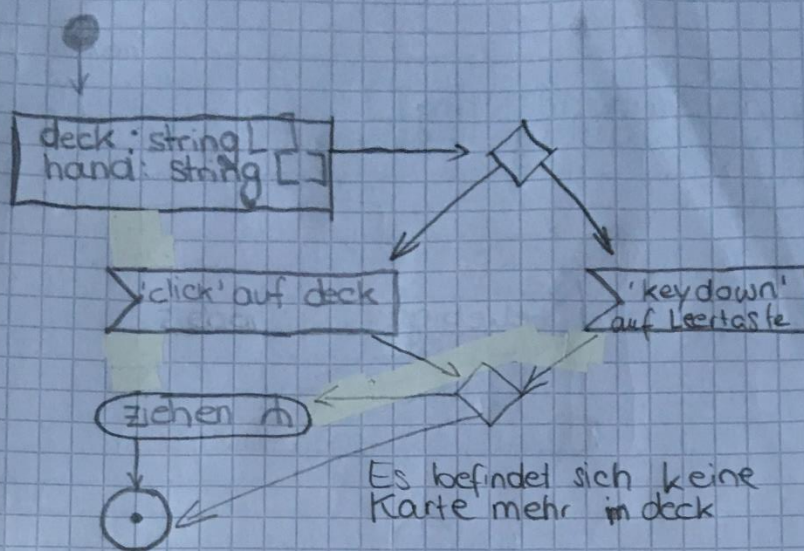 deck: string[]
hand: string[]
'click' auf deck
'keydown'
auf Leertaste
ziehen
Es befindet sich keine
Karte mehr in deck